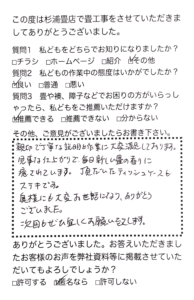 この度は杉浦畳店で畳工事をさせていただきま
してありがとうございました。
質問1 私どもをどちらでお知りになりましたか？
□チラシ □ホームページ □紹介 □その他
質問2 私どもの作業中の態度はいかがでしたか？
□良い □普通 □悪い
質問3 畳や襖、障子などでお困りの方がいらっし
ゃったら、私どもをご推薦いただけますか？
□推薦できる □推薦できない □分からない
その他、ご意見がございましたらお書き下さい。
親切で丁寧な説明と作業に大変満足しております。
見事な仕上がりで毎日新しい畳の香りに
癒されています。頂だいしたティッシュケースも
ステキです。
奥様にも大変お世話になり、ありがとう
ございました。
次回もぜひお願いします
ありがとうございました。お答えいただきまし
たお客様のお声を弊社資料等に掲載させていた
だいてもよろしでしょうか？
□許可する □匿名なら □許可しない